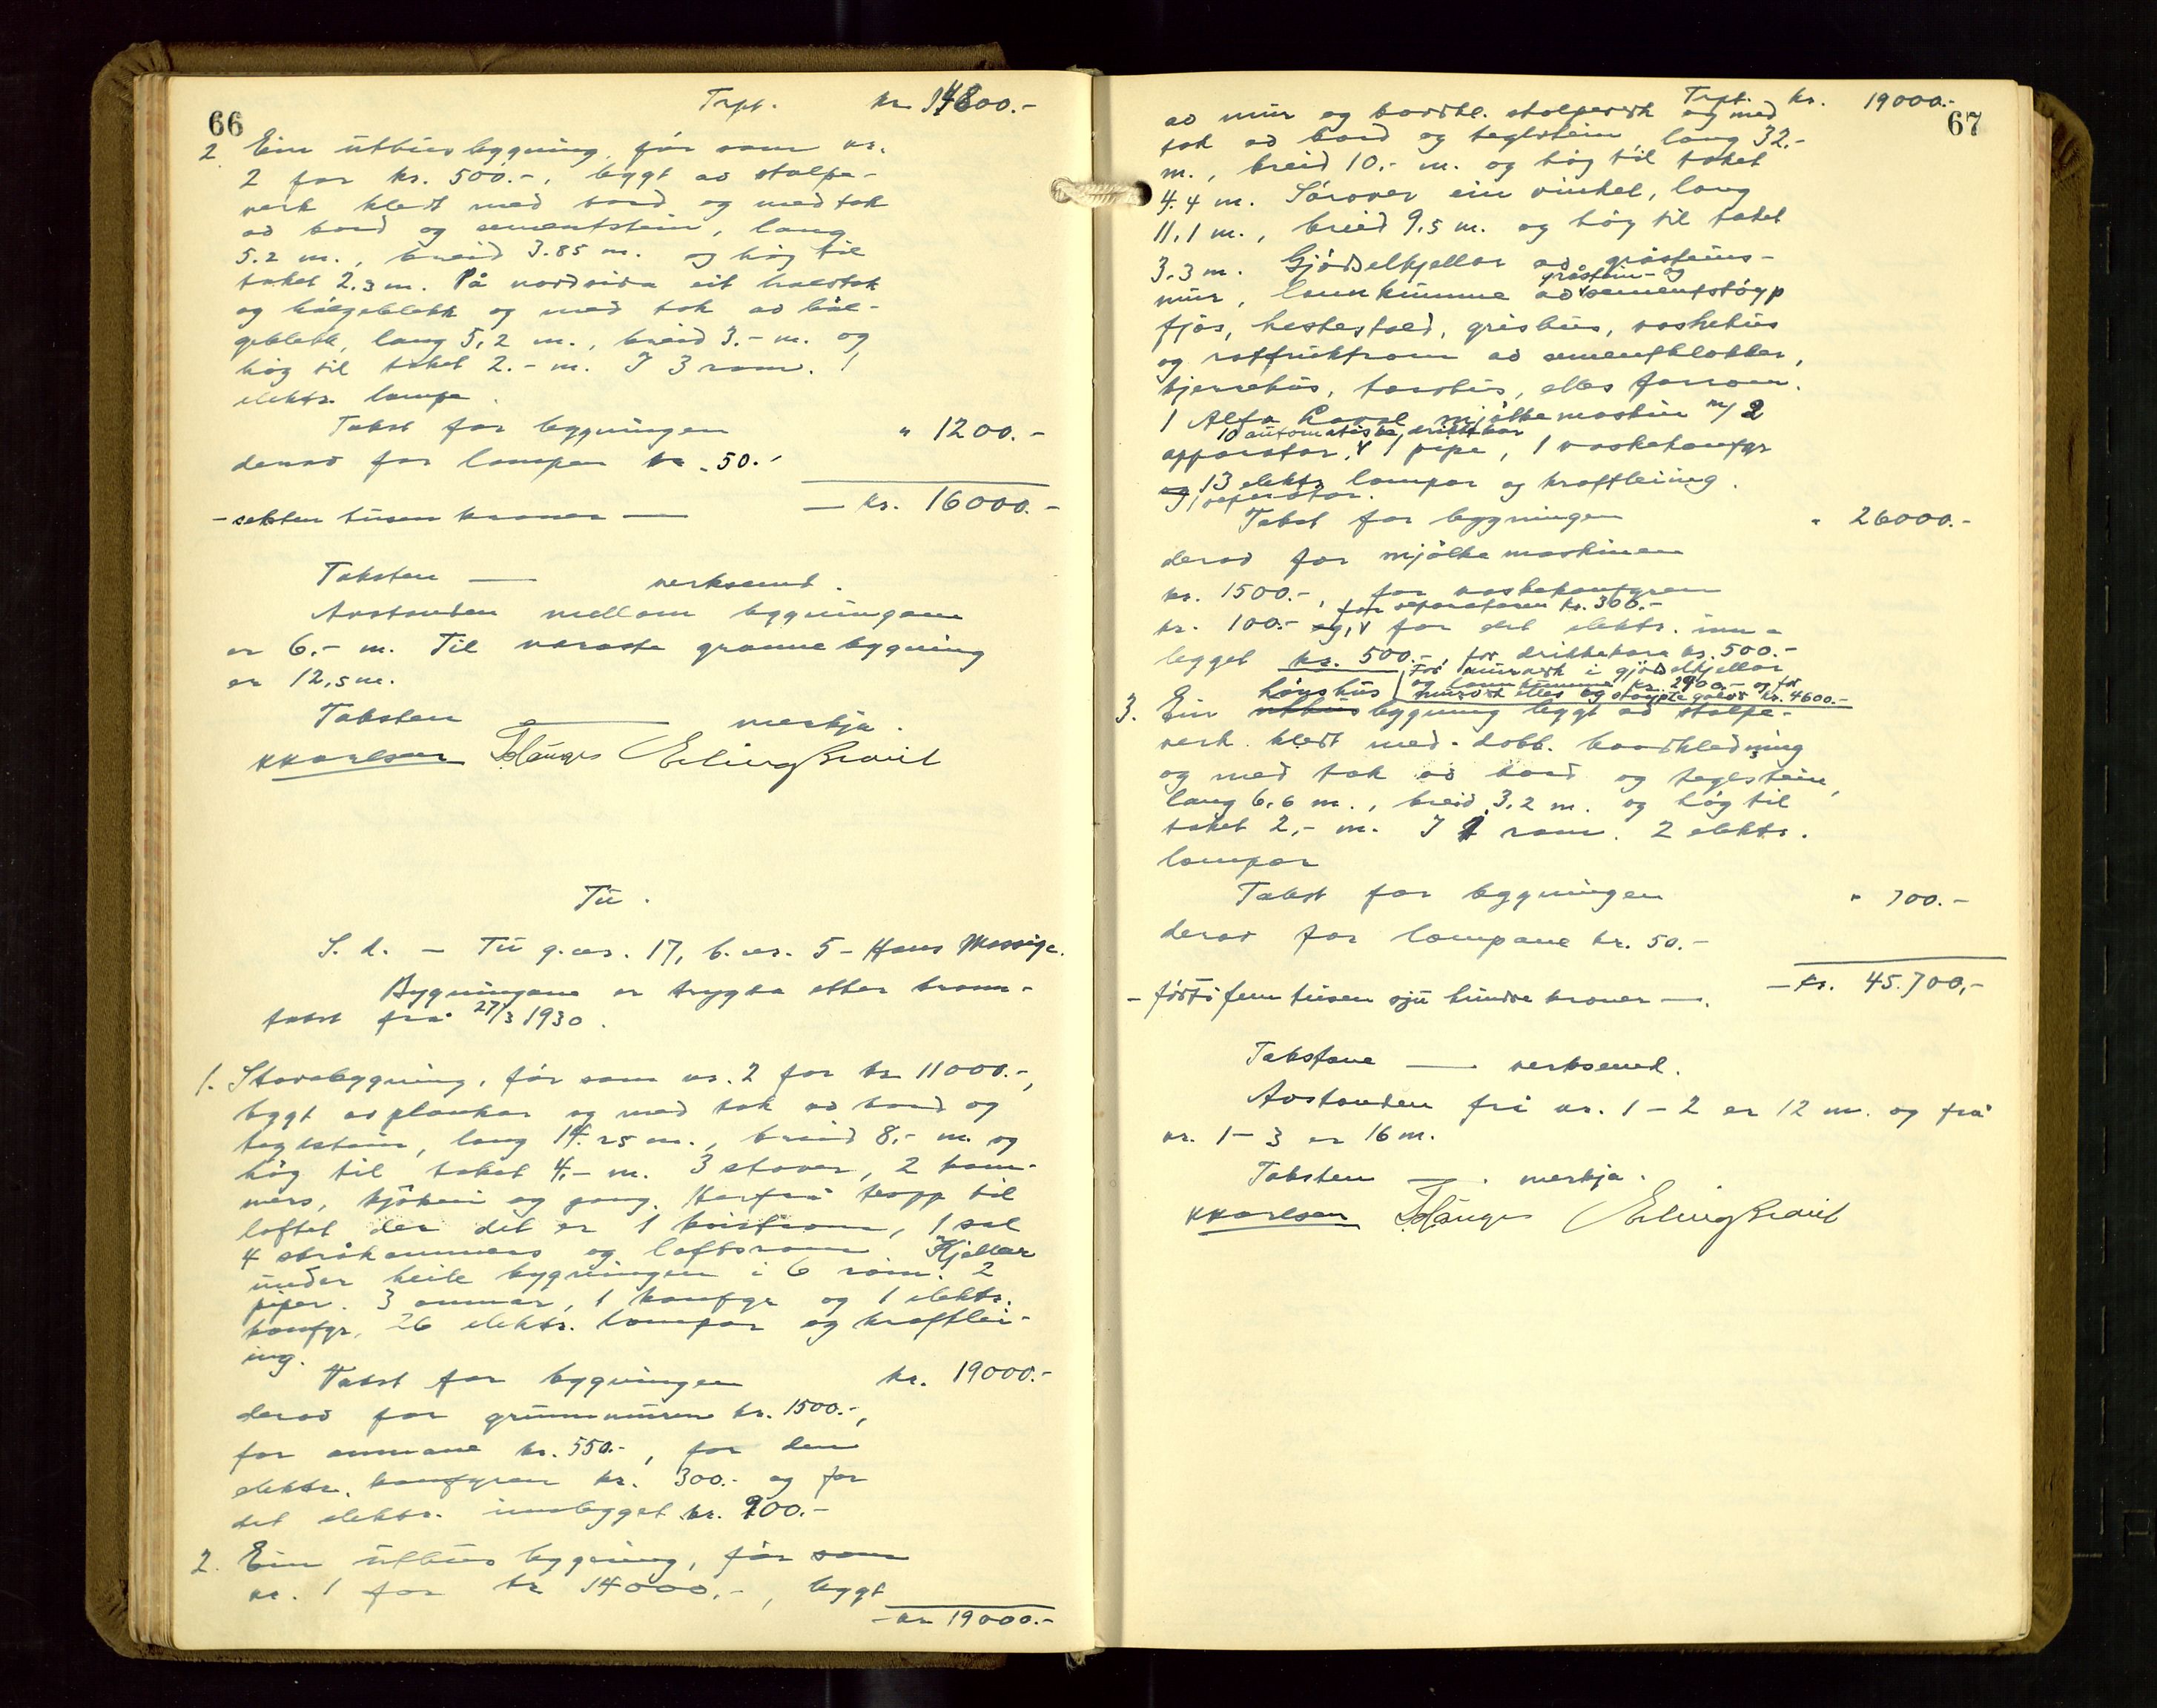 66
Trpt. kr 14800.-
2 Ein uthusbygning, før som nr.
2 for kr. 500.-, bygt av stolpe-
verk kledt med bord og med tak
av bord og sementstein, lang
5.2 m., breid 3.85 m. og høg til
taket 2.3 m. På nordsida eit halvtak
og bølgeblekk og med tak av bøl-
geblekk, lang 5,2 m., breid 3.- m. og
høg til taket 2.- m. I 3 rom. 1
elektr. lampe.
Takst for bygningen " 1200.-
derav for lampen kr. 50.-
- seksten tusen kroner — — kr. 16000.-
Taksten — verksemd.
Avstanden mellom bygningane
er 6.- m. Til næraste grannebygning
er 12,5 m.
Taksten — merkja.
KKarlsen T Hauge Erling Braut
Tu.
S. d. - Tu g.nr. 17, b.nr. 5 - Hans Mossige.
Bygningane er trygda etter brann-
takst frå 27/3 1930.
1. Stovebygning, før som nr. 2 for kr 11000.-,
bygt av plankar og med tak av bord og
teglstein, lang 14.25 m., breid 8,- m. og
høg til taket 4.- m. 3 stover, 2 kam-
mers, kjøken og gang. Herfrå tropp til
loftet der det er 1 kvistrom, 1 sal
4 skråkammers og loftsrom. Kjellar
under heile bygningen i 6 rom. 2
piper. 3 omnar, 1 komfyr og 1 elektr.
komfyr, 26 elektr. lampor og kraftlei-
ing.
Takst for bygningen kr. 19000.-
derav for grunnmuren kr. 1500.-,
for omnane kr. 550.-, for den
elektr. komfyren kr. 300.- og for
det elektr. innlegget kr. 900.-
2. Ein uthusbygning, før som
nr. 1 for kr 14000.-, bygt
- kr 19000.-
67
Trpt. kr. 19000.-
av mur og bordkl. stolpeverk og med
tak av bord og teglstein, lang 32.-
m., breid 10.- m. og høg til taket
4.4 m. Sørover ein vinkel, lang
11.1 m., breid 9,5 m. og høg til taket
3.3 m. Gjødselkjellar av gråsteins-
mur, landkumme av gråstein- og sementstøyp
fjøs, hestestald, grishus, vaskehus
og rotfruktrom av sementblokker,
kjerrehus, torvhus, elles forrom.
1 Alfa Laval mjølkemaskin m/ 2
10 automatiske drikkekar
apparatar, 1 pipe, 1 vaskekomfyr
og 13 elektr. lampor og kraftleiing.
1 separator.
Takst for bygningen " 26000.-
derav for mjølkemaskinen
kr. 1500.-, for vaskekomfyren
for separatoren kr. 300.-
kr. 100.- og, for det elektr. inn-
legget kr. 500.-, for drikkekara kr. 500.-
For murverk i gjødselkjellar
og landkumme kr. 2900.- og for
murverk elles og støypte golv kr. 4600.-
3. Ein hønshusbygning bygt av stolpe-
verk kledt med dobb. bordkledning
og med tak av bord og teglstein,
lang 6,6 m., breid 3,2 m. og høg til
taket 2,- m. I 1 rom. 2 elektr.
lampor
Takst for bygningen " 700.-
derav for lampane kr. 50.-
- førtifem tusen sju hundre kroner —. — kr. 45.700,-
Takstane — verksemd.
Avstanden frå nr. 1 - 2 er 12 m. og frå
nr. 1 - 3 er 16 m.
Taksten — merkja.
KKarlsen T Hauge Erling Braut